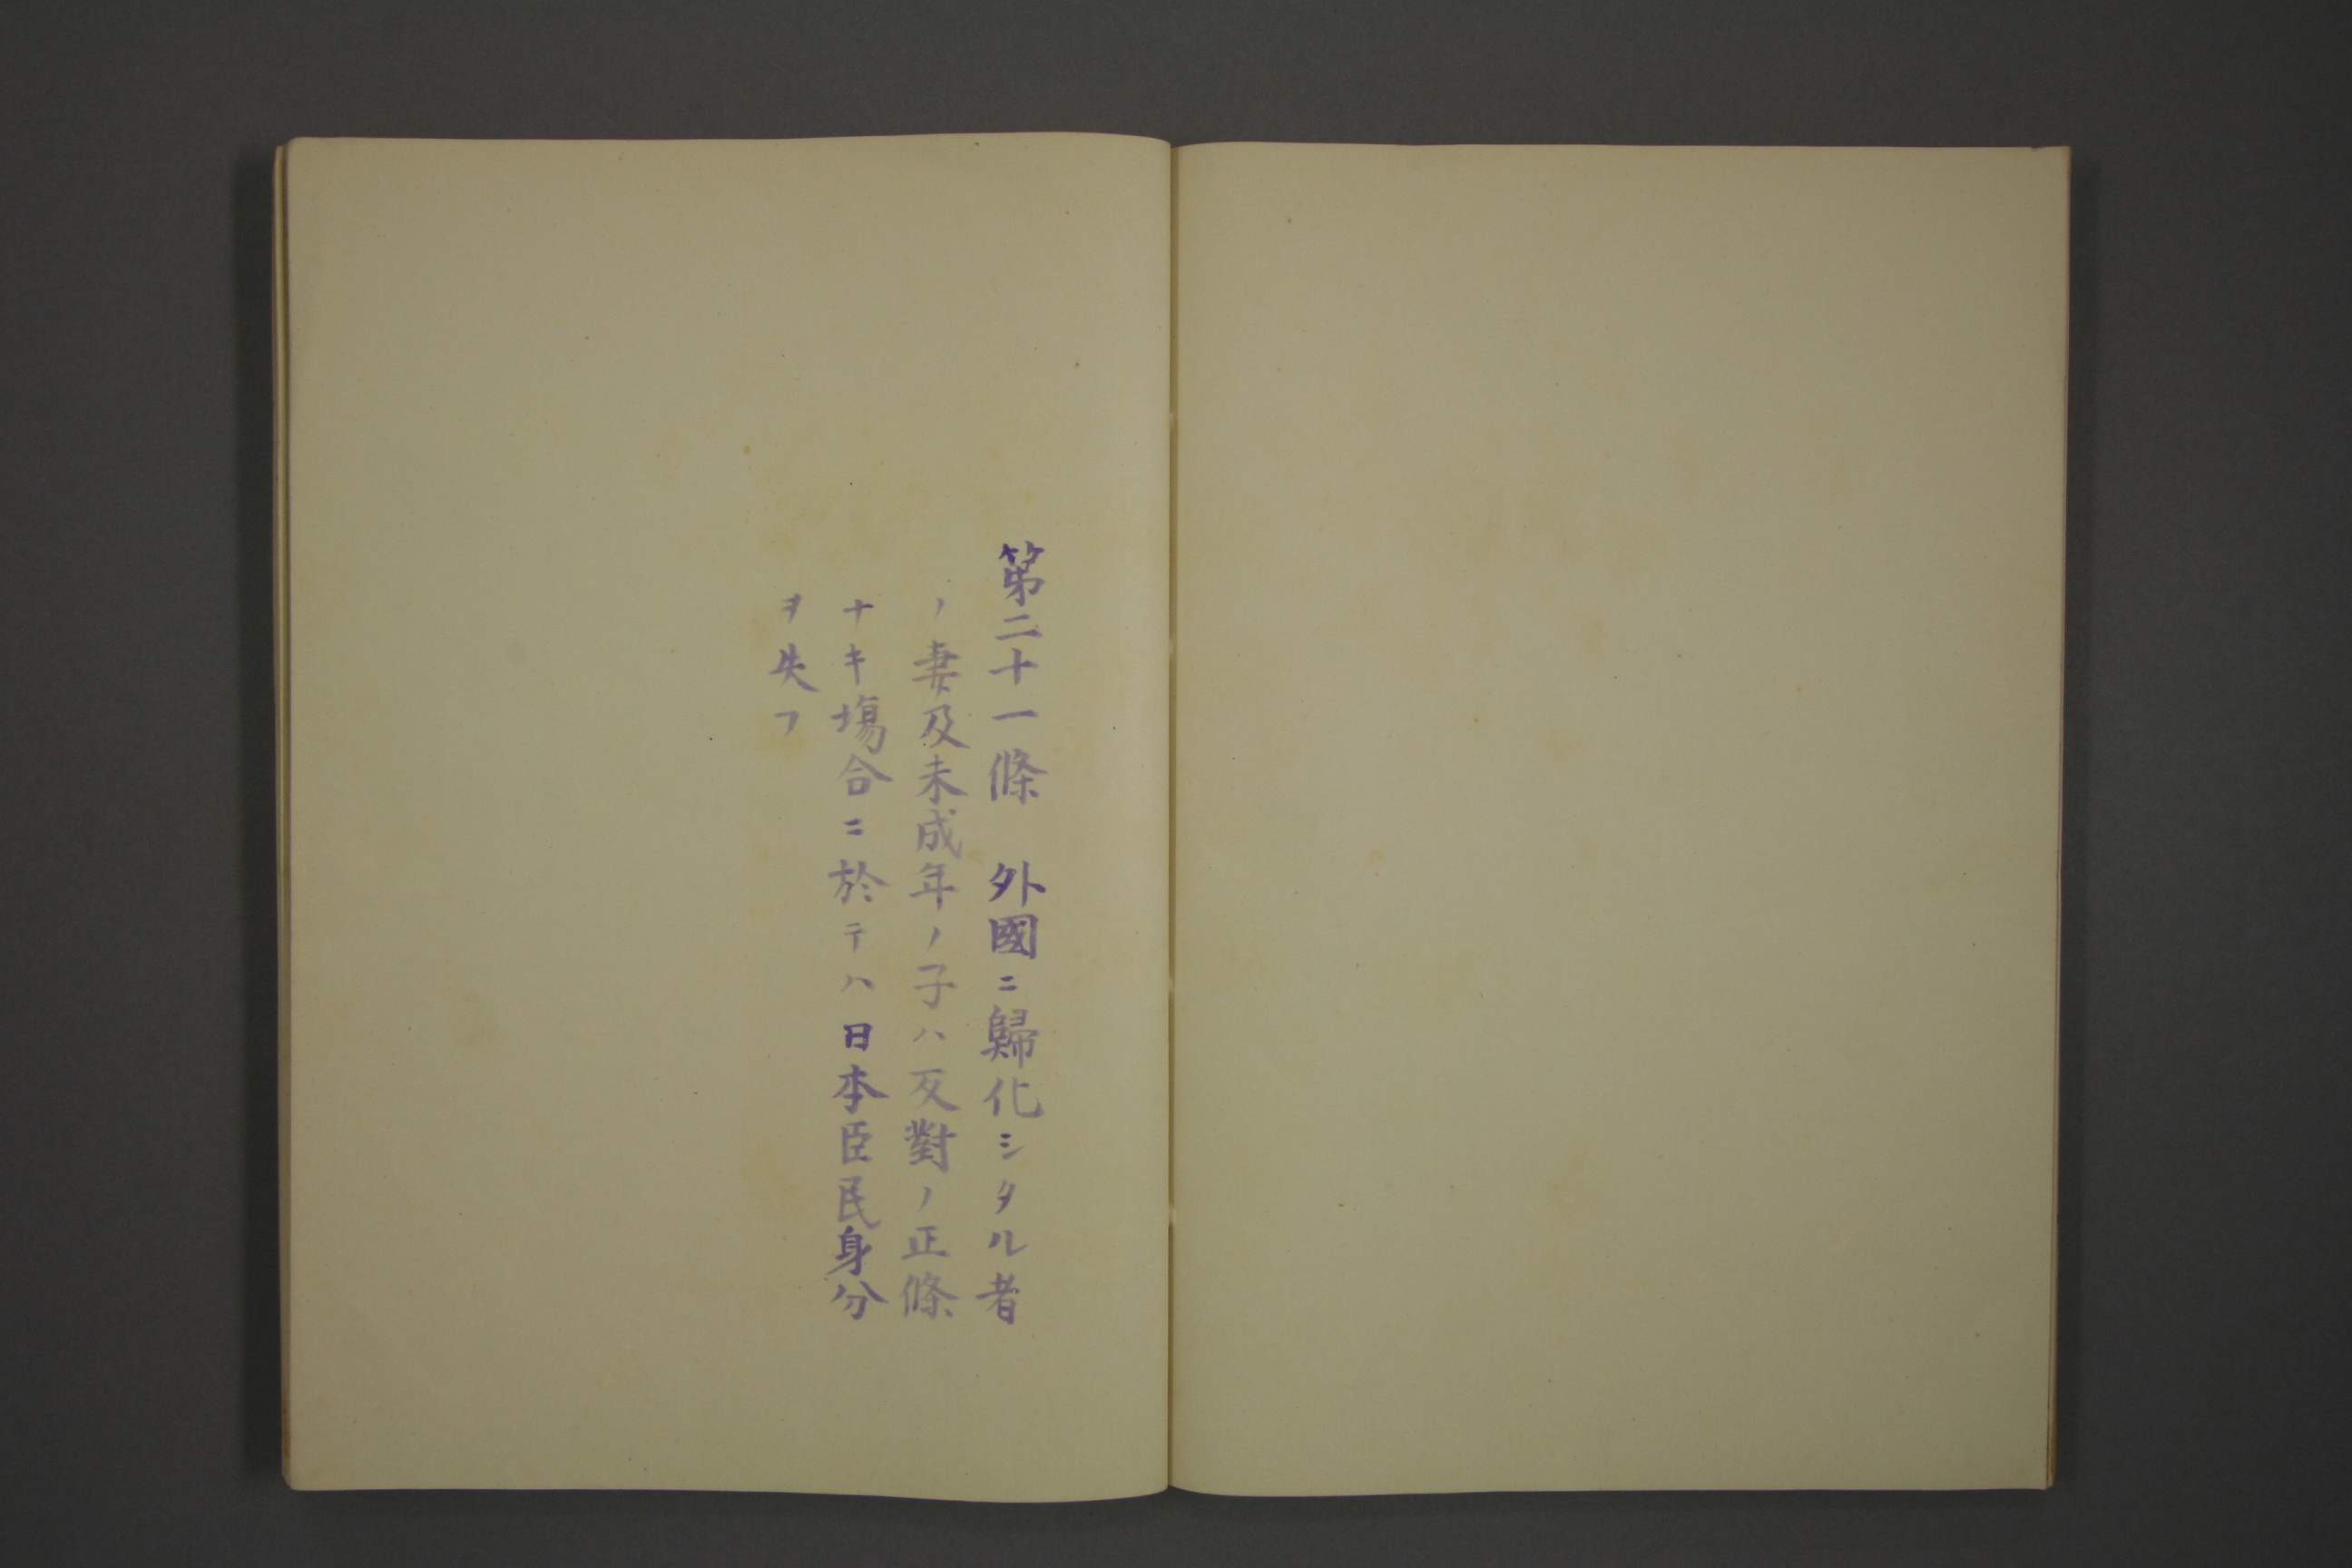 第二十一條　外國ニ歸化シタル者
ノ妻及未成年ノ子ハ反對ノ正條
ナキ場合ニ於テハ日本臣民身分
ヲ失フ